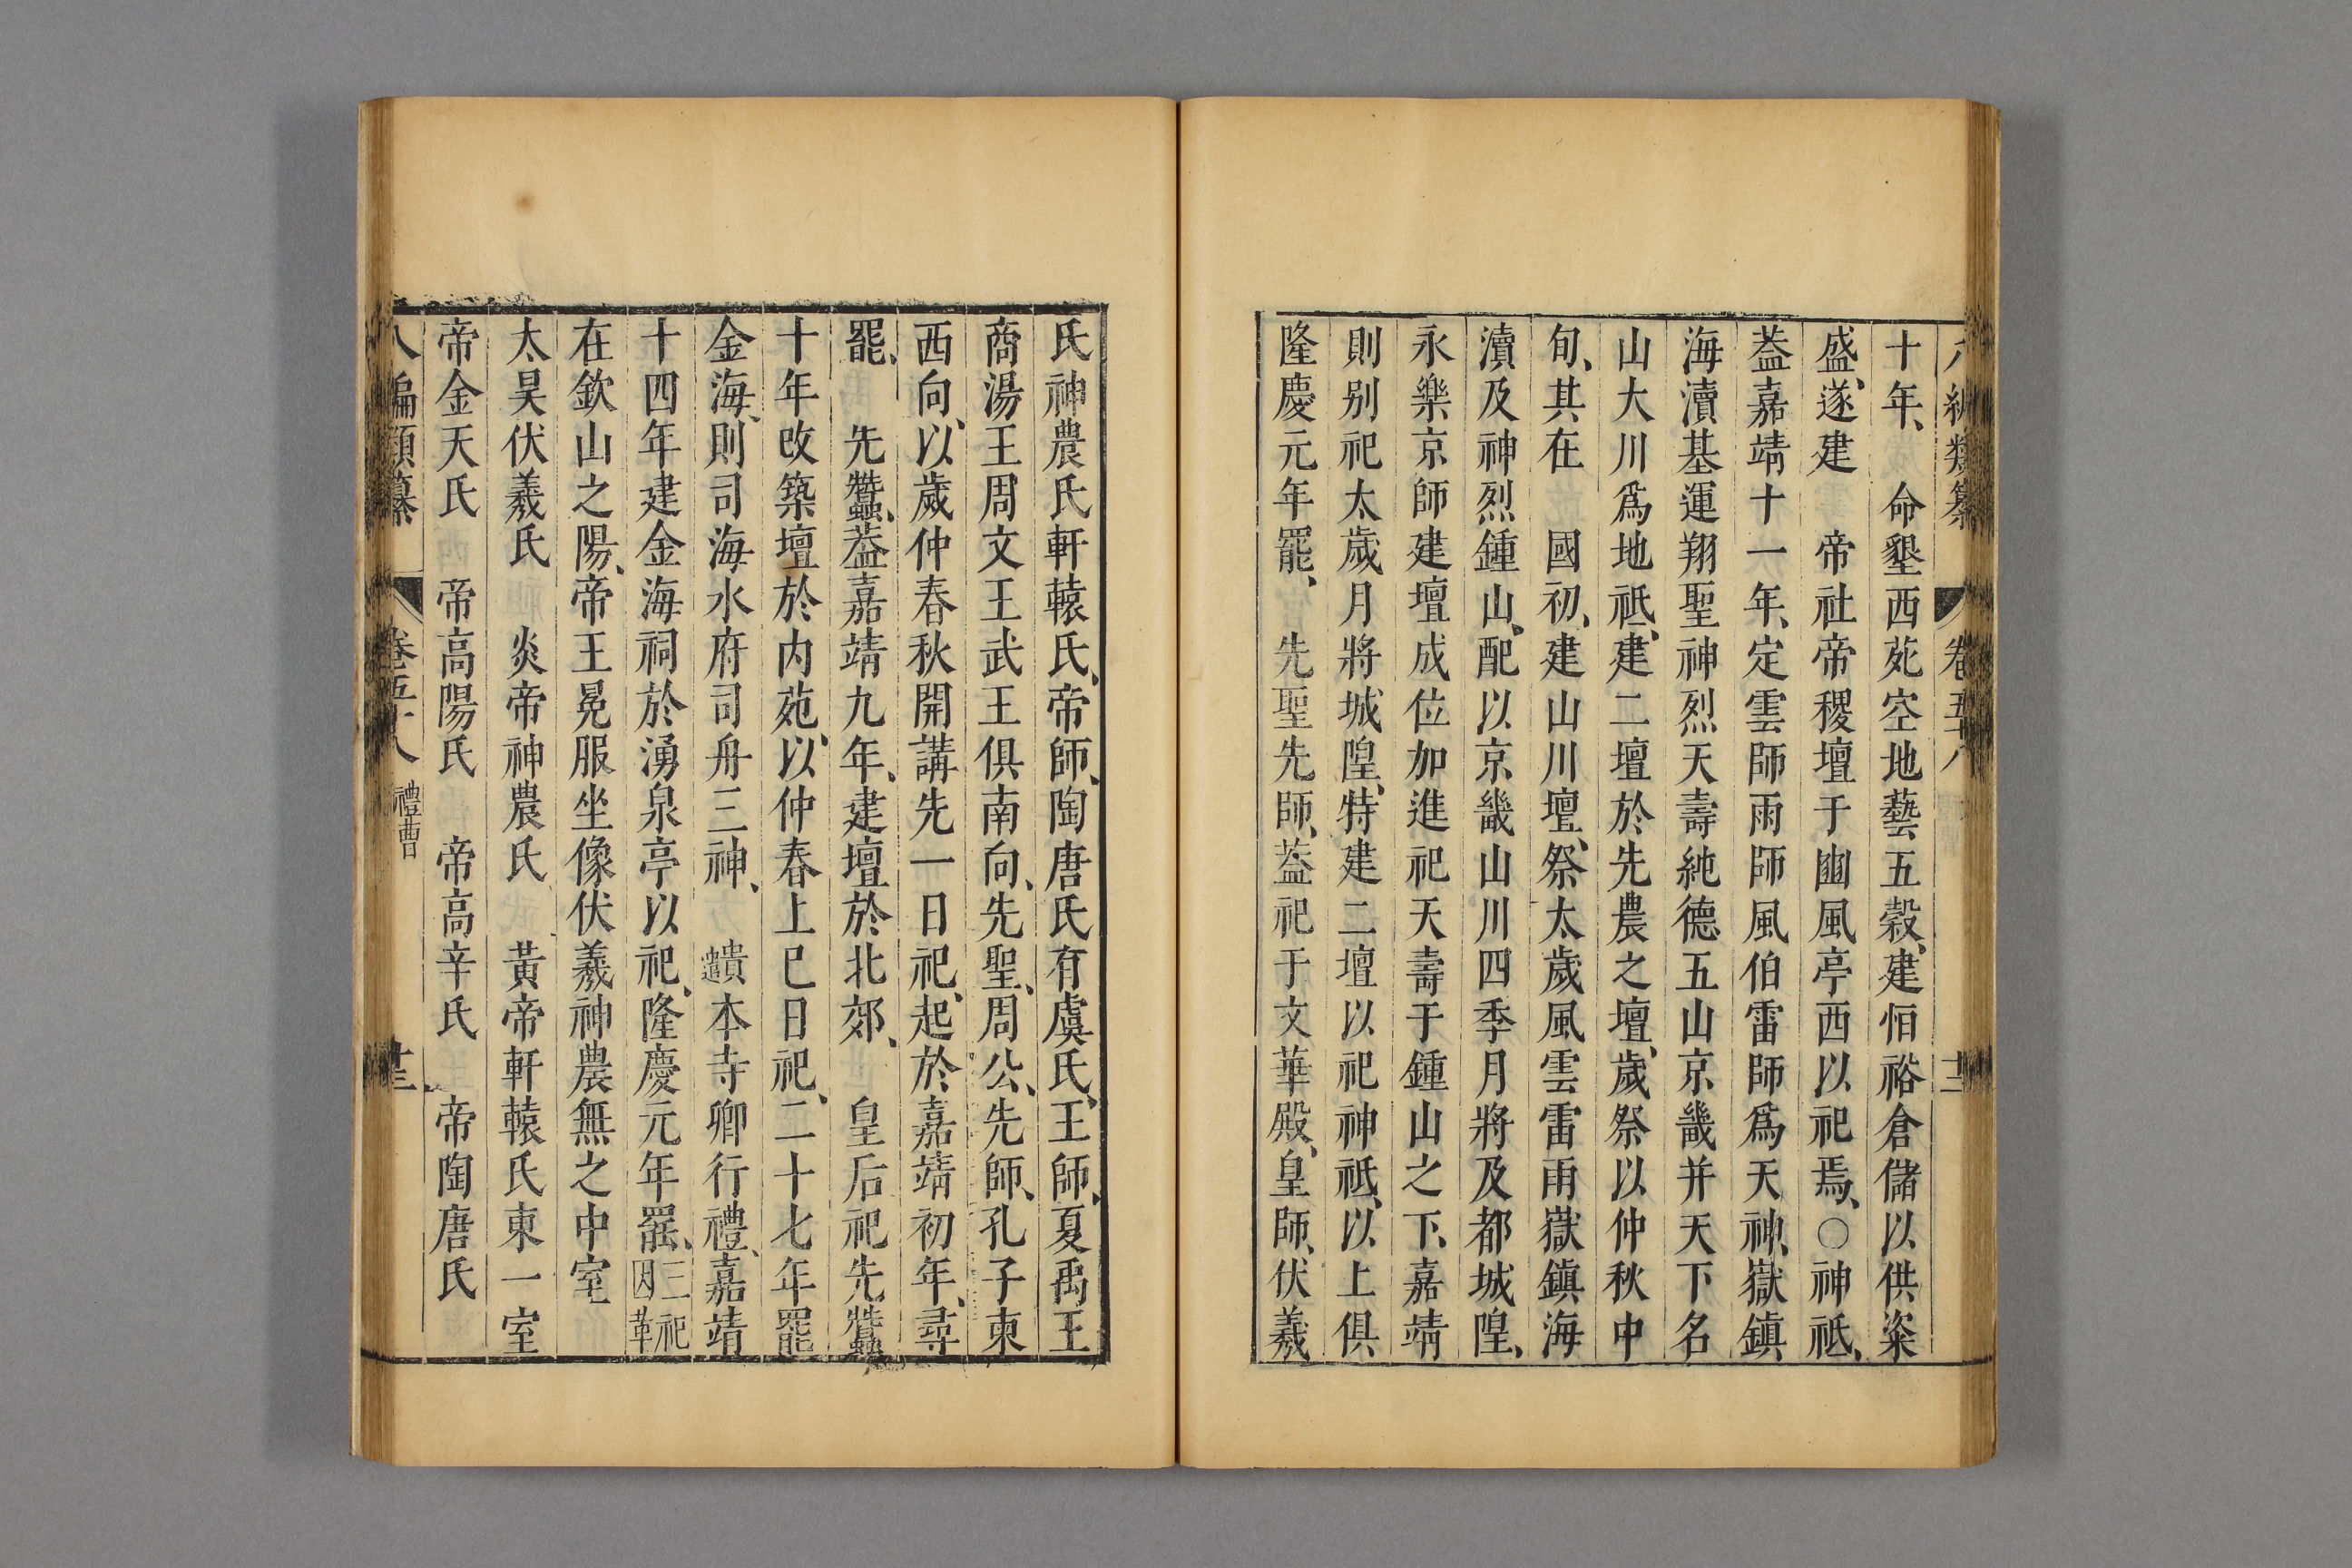 八編類纂 卷五十八 十二
十年、 命墾西苑空地藝五穀、建恒裕倉儲以供粢
盛、遂建 帝社帝稷壇于豳風亭西以祀焉、○神祇、
葢嘉靖十一年、定雲師雨師風伯雷師爲天神、嶽鎮
海瀆基運翔聖神烈天壽純德五山京畿并天下名
山大川爲地祇、建二壇於先農之壇、歲祭以仲秋中
旬、其在 國初、建山川壇、祭太歲風雲雷雨嶽鎮海
瀆及神烈鍾山、配以京畿山川四季月將及都城隍、
永樂京師建壇成位加進祀天壽于鍾山之下、嘉靖
則别祀太歲月將城隍、特建二壇以祀神祇、以上俱
隆慶元年罷、 先聖先師、葢祀于文華殿、皇師、伏羲
氏神農氏軒轅氏、帝師、陶唐氏有虞氏、王師、夏禹王
商湯王周文王武王俱南向、先聖、周公、先師、孔子東
西向、以歲仲春秋開講先一日祀、起於嘉靖初年、尋
罷、 先蠶、葢嘉靖九年、建壇於北郊、 皇后祀先蠶
十年改築壇於内苑、以仲春上巳日祀、二十七年罷
金海、則司海水府司舟三神、 遣本寺卿行禮、嘉靖
十四年建金海祠於湧泉亭以祀、隆慶元年罷、三祀因革
在欽山之陽、帝王冕服坐像伏羲神農無之中室
太昊伏羲氏 炎帝神農氏 黃帝軒轅氏東一室
帝金天氏 帝高陽氏 帝高辛氏 帝陶唐氏
八編類纂 卷五十八 禮曹 十三